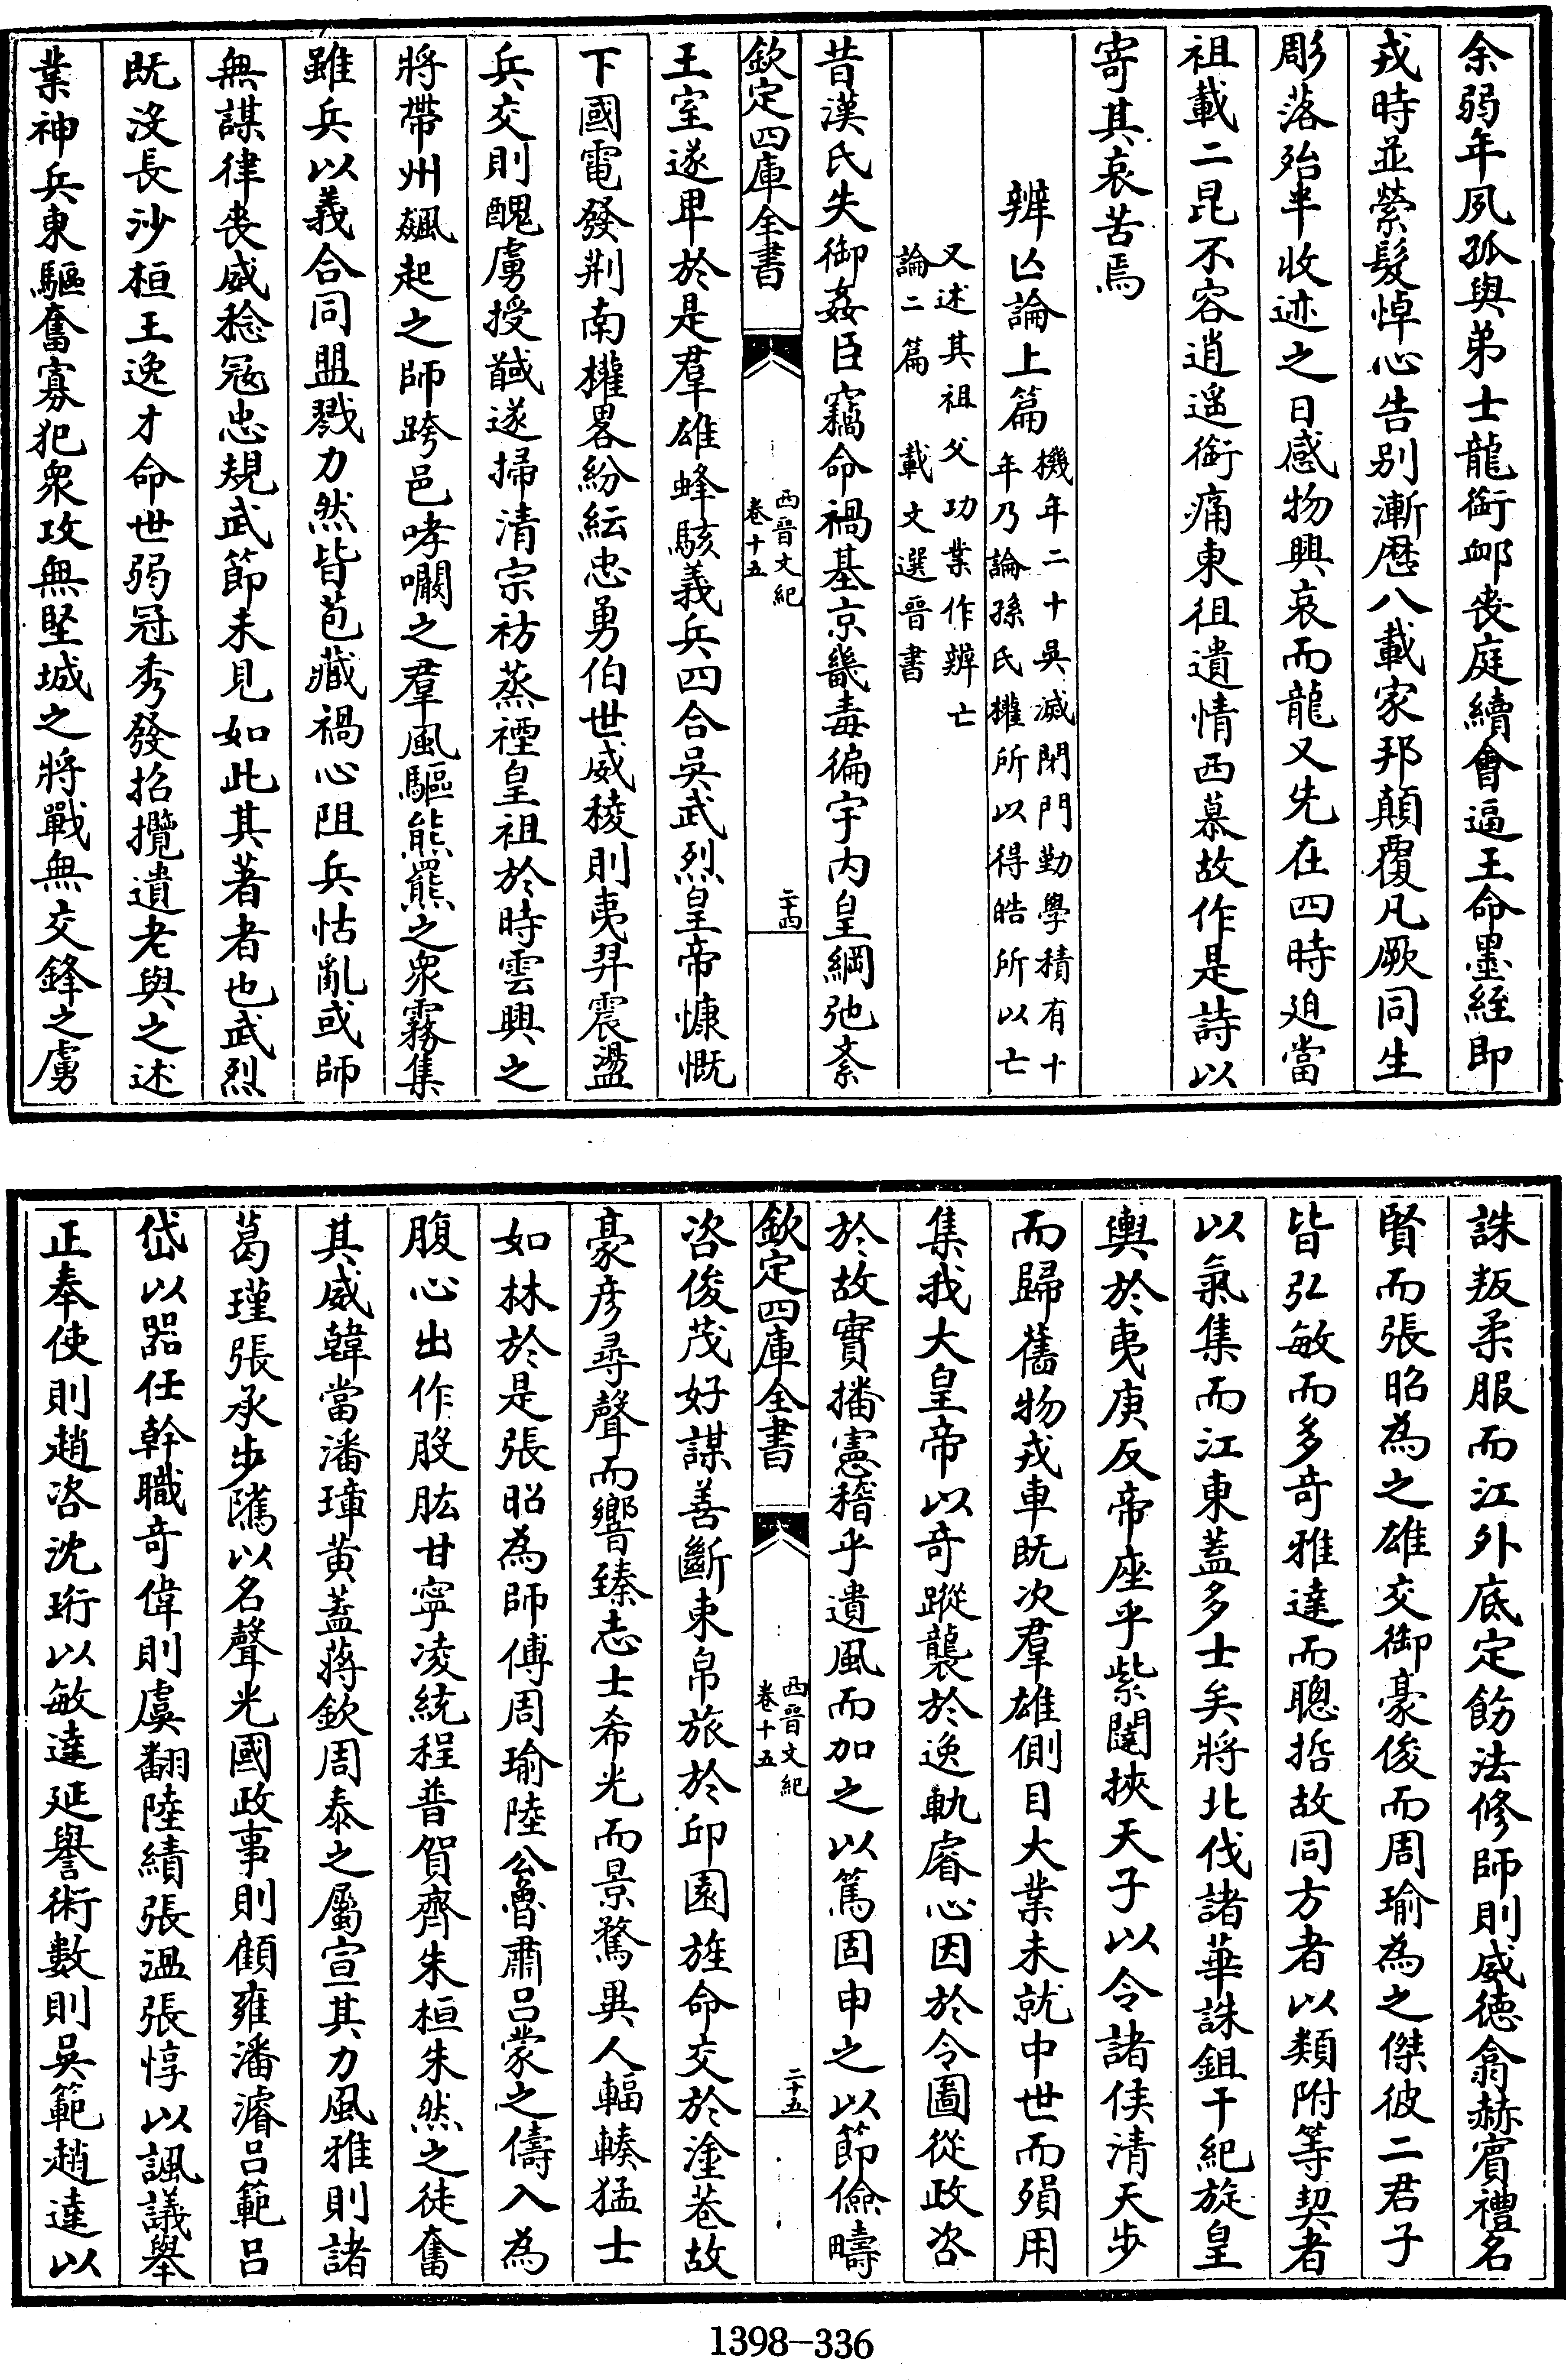 余弱年夙孤與弟士龍銜䘏喪庭續會逼王命墨絰即
戎時並縈髮悼心告别漸歴八載家邦顛覆凡厥同生
彫落殆半收迹之日感物興哀而龍又先在四時迫當
祖載二昆不容逍遥銜痛東徂遺情西慕故作是詩以
寄其哀苦焉
辨亾論上篇機年二十吳滅閉門勤學積有十
年乃論孫氏權所以得皓所以亡
又述其祖父功業作辨亡
論二篇 載文選晉書
昔漢氏失御姦臣竊命禍基京畿毒徧宇内皇綱弛紊
欽定四庫全書
西晉文紀
卷十五
二十四
王室遂卑於是羣雄蜂駭義兵四合吳武烈皇帝慷慨
下國電發荆南權畧紛紜忠勇伯世威稜則夷羿震盪
兵交則醜虜授馘遂掃清宗祊蒸禋皇祖於時雲興之
將帶州飆起之師跨邑哮嚪之羣風驅熊羆之衆霧集
雖兵以義合同盟戮力然皆苞藏禍心阻兵怙亂或師
無謀律喪威稔冦忠規武節未見如此其著者也武烈
既沒長沙桓王逸才命世弱冠秀發招攬遺老與之述
業神兵東驅奮寡犯衆攻無堅城之將戰無交鋒之虜
誅叛柔服而江外底定飭法修師則威徳翕赫賓禮名
賢而張昭為之雄交御豪俊而周瑜為之傑彼二君子
皆弘敏而多奇雅達而聰哲故同方者以類附等契者
以氣集而江東蓋多士矣將北伐諸華誅鉏干紀旋皇
輿於夷庚反帝座乎紫闥挾天子以令諸侯清天步
而歸舊物戎車既次羣雄側目大業未就中世而殞用
集我大皇帝以奇蹤襲於逸軌睿心因於令圖從政咨
於故實播憲稽乎遺風而加之以篤固申之以節儉疇
欽定四庫全書
西晉文紀
卷十五
二十五
咨俊茂好謀善斷束帛旅於邱園旌命交於塗巷故
豪彦尋聲而響臻志士希光而景騖異人輻輳猛士
如林於是張昭為師傅周瑜陸公魯肅呂蒙之儔入為
腹心出作股肱甘寧凌統程普賀齊朱桓朱然之徒奮
其威韓當潘璋黄蓋蔣欽周泰之屬宣其力風雅則諸
葛瑾張承步隲以名聲光國政事則顧雍潘濬呂範呂
岱以器任幹職奇偉則虞翻陸績張溫張惇以諷議舉
正奉使則趙咨沈珩以敏達延譽術數則吳範趙達以
1398-336